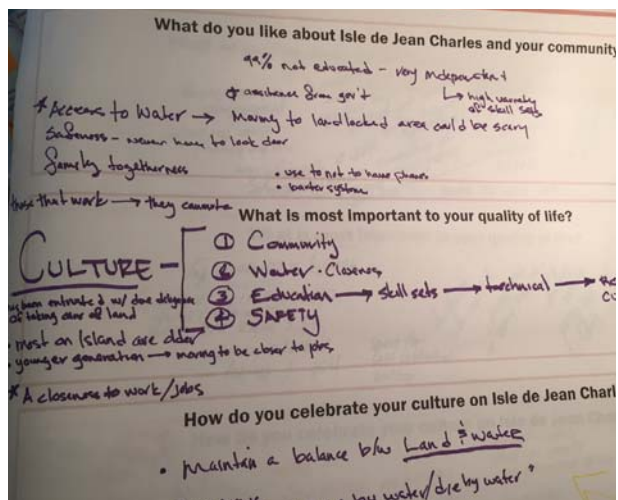 What do you like about Isle de Jean Charles and your community
99% not educated - very independent
∅ assistance from gov't ↳ high variety of skill sets
* Access to Water → Moving to landlocked area could be scary
Safeness - never have to lock door
Family togetherness
• use to not to have phones
• barter system
those that work → they commute
What is most important to your quality of life?
CULTURE -
① Community
② Water · Closeness
③ Education → skill sets → technical →
④ SAFETY
been entrusted w/ due diligence
of taking care of land
• most on Island are older
• younger generation → moving to be closer to jobs
* A closeness to work/jobs
How do you celebrate your culture on Isle de Jean Charl
• maintain a balance b/w Land & water
by water/die by water"